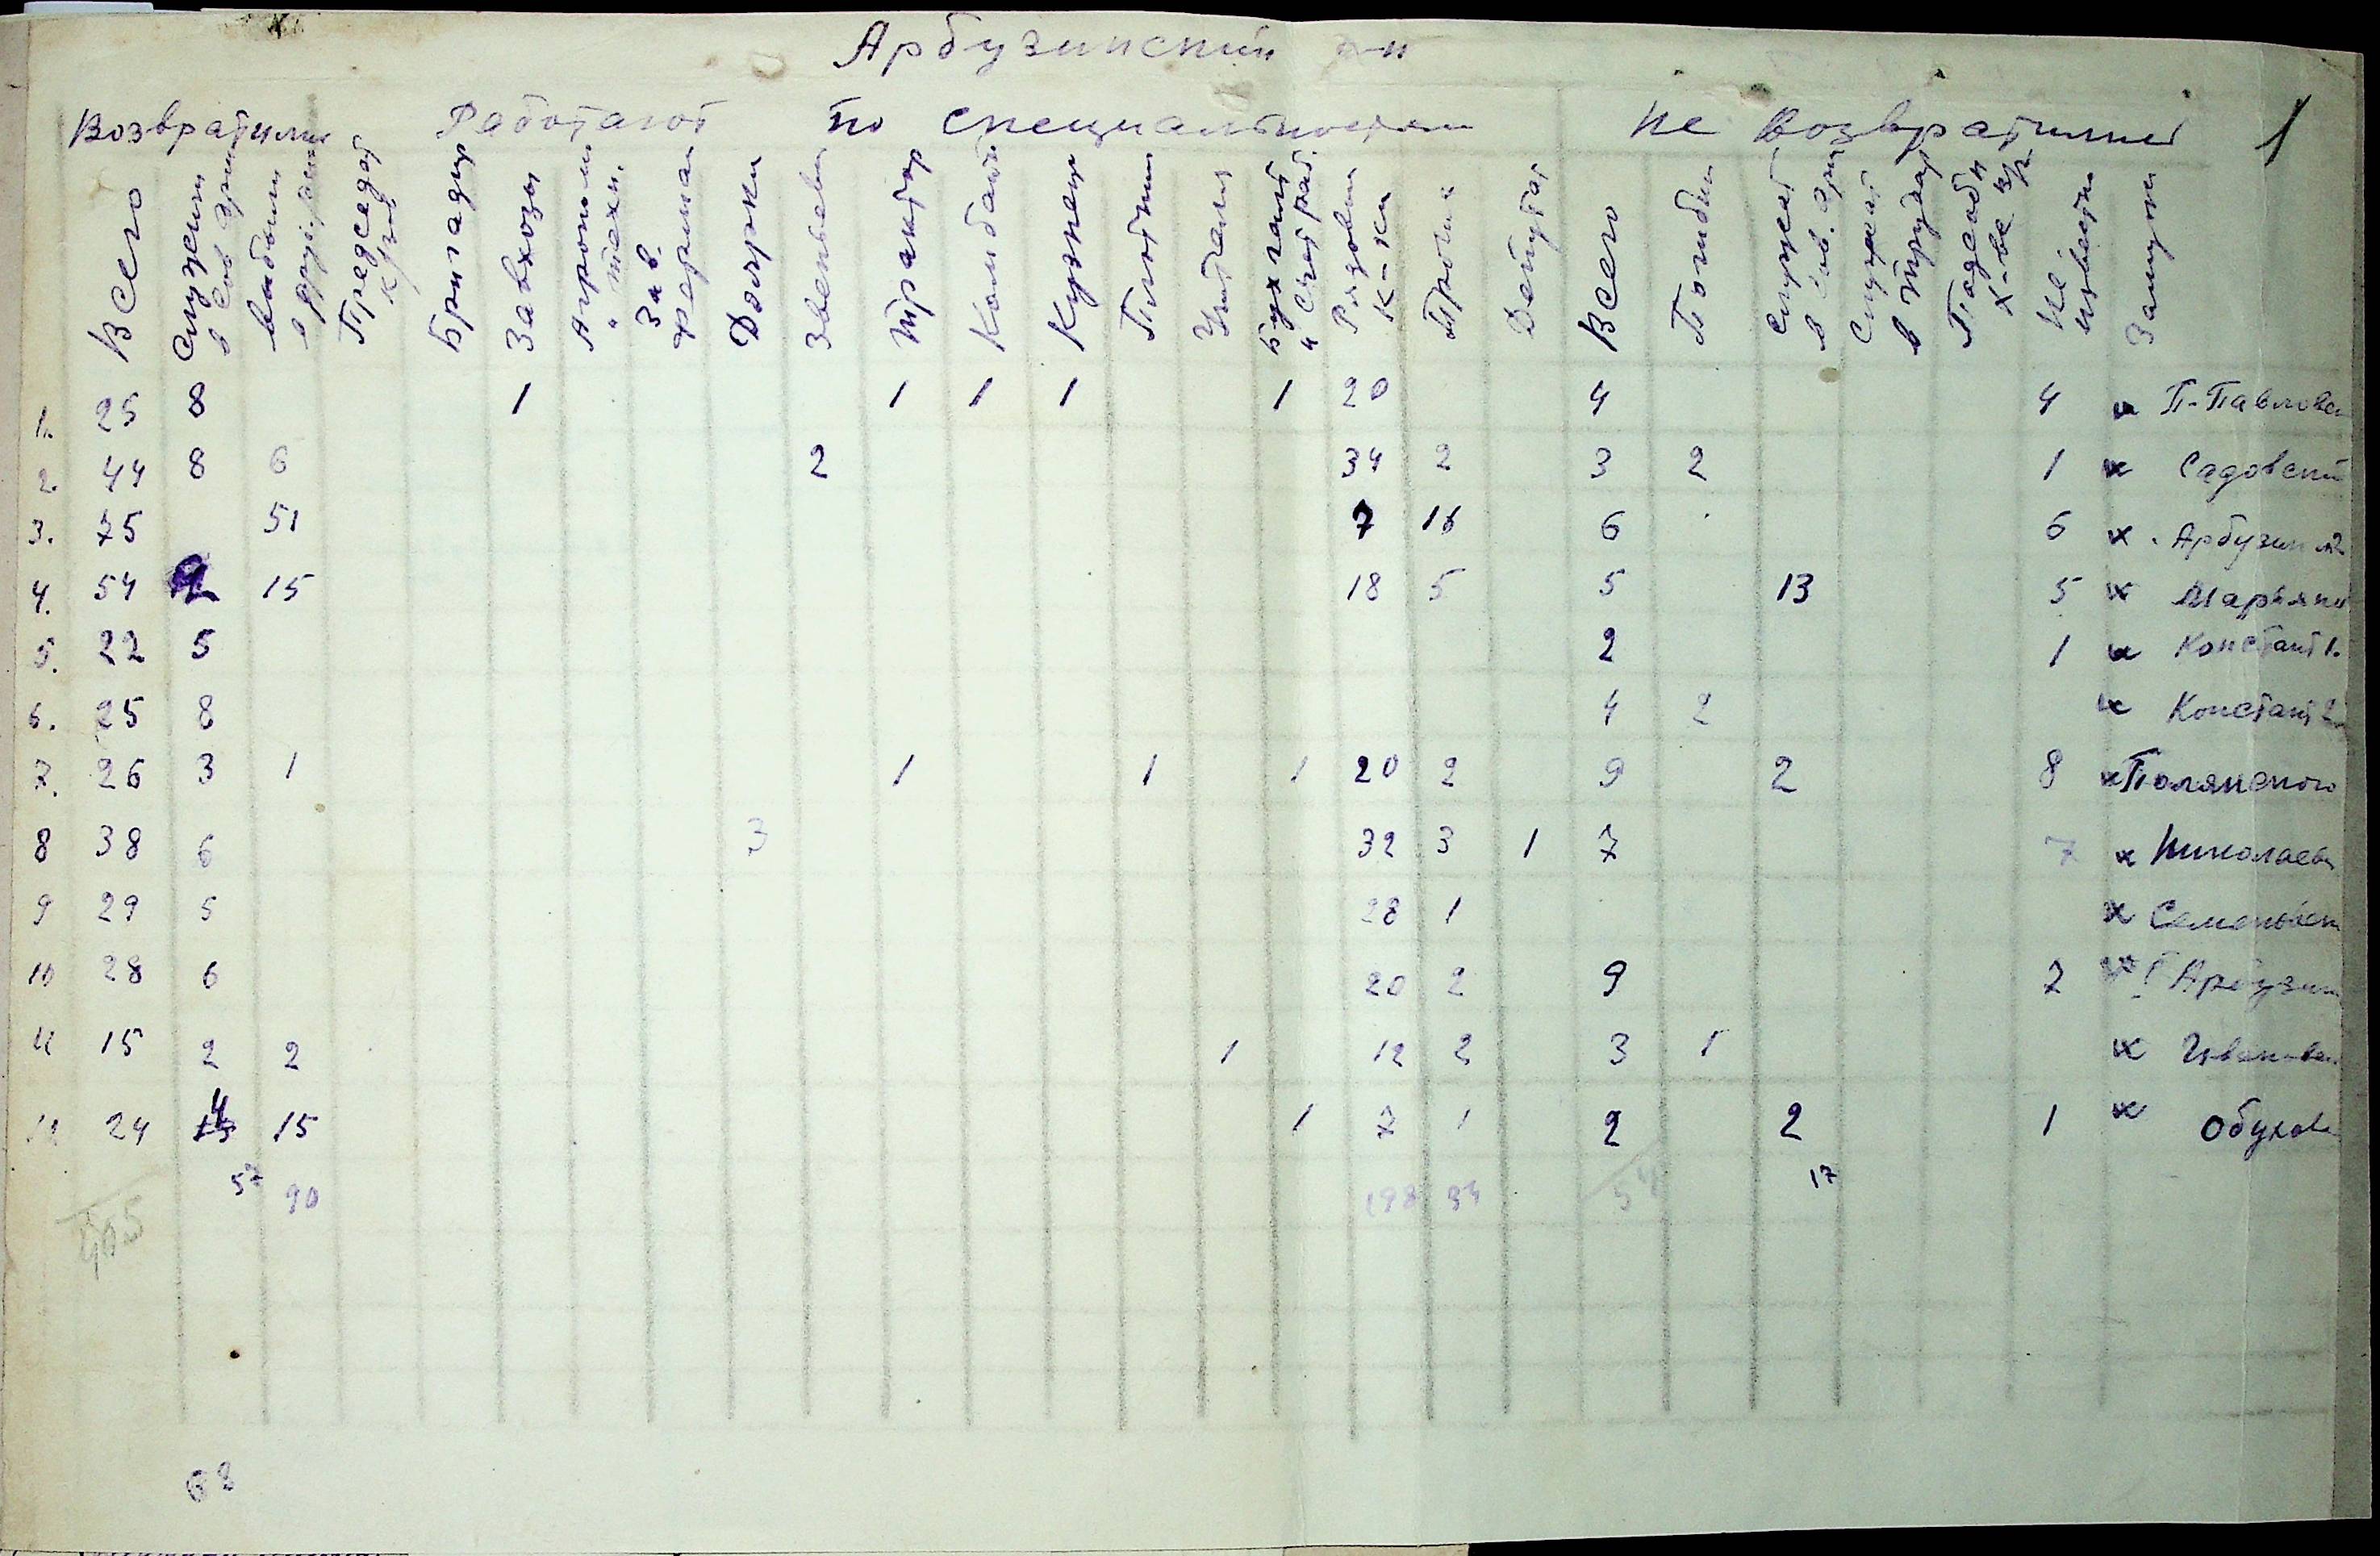 Арбузинский р-н
Возвратились Работают по специальностям Не Возвратились 1
Всего Служили в Сов Арми выбыли в другие Председат к/х Бригадир Завхозы Агрономы и техн. Зав. фермам Доярки Звеньевы Трактор Комбайн Кузнец Плотник Учителя Бухгалт и Счет раб. Рядовых К-ки Прочие Депутат Всего Погибли служат в Сов. арм Служат в Не известно Замужем
1. 25 8 1 1 1 1 1 20 4 4 х П-Павловс
2. 44 8 6 2 34 2 3 2 1 х Садовский
3. 75 51 7 16 6 6 х Арбузин №2
4. 54 2 15 18 5 5 13 5 х Марьянов
5. 22 5 2 1 х Констант 1.
6. 25 8 4 2 х Констант 2
7. 26 3 1 1 1 1 20 2 9 2 8 х Полянского
8 38 6 3 32 3 1 7 7 х Николаев
9 29 5 28 1 х Семеновск
10 28 6 20 2 9 2 х Арбузин
11 15 2 2 1 12 2 3 1 х Ивановс
12 24 4 15 1 7 1 2 2 1 х Обухов
405 57 90 198 34 54 17
68